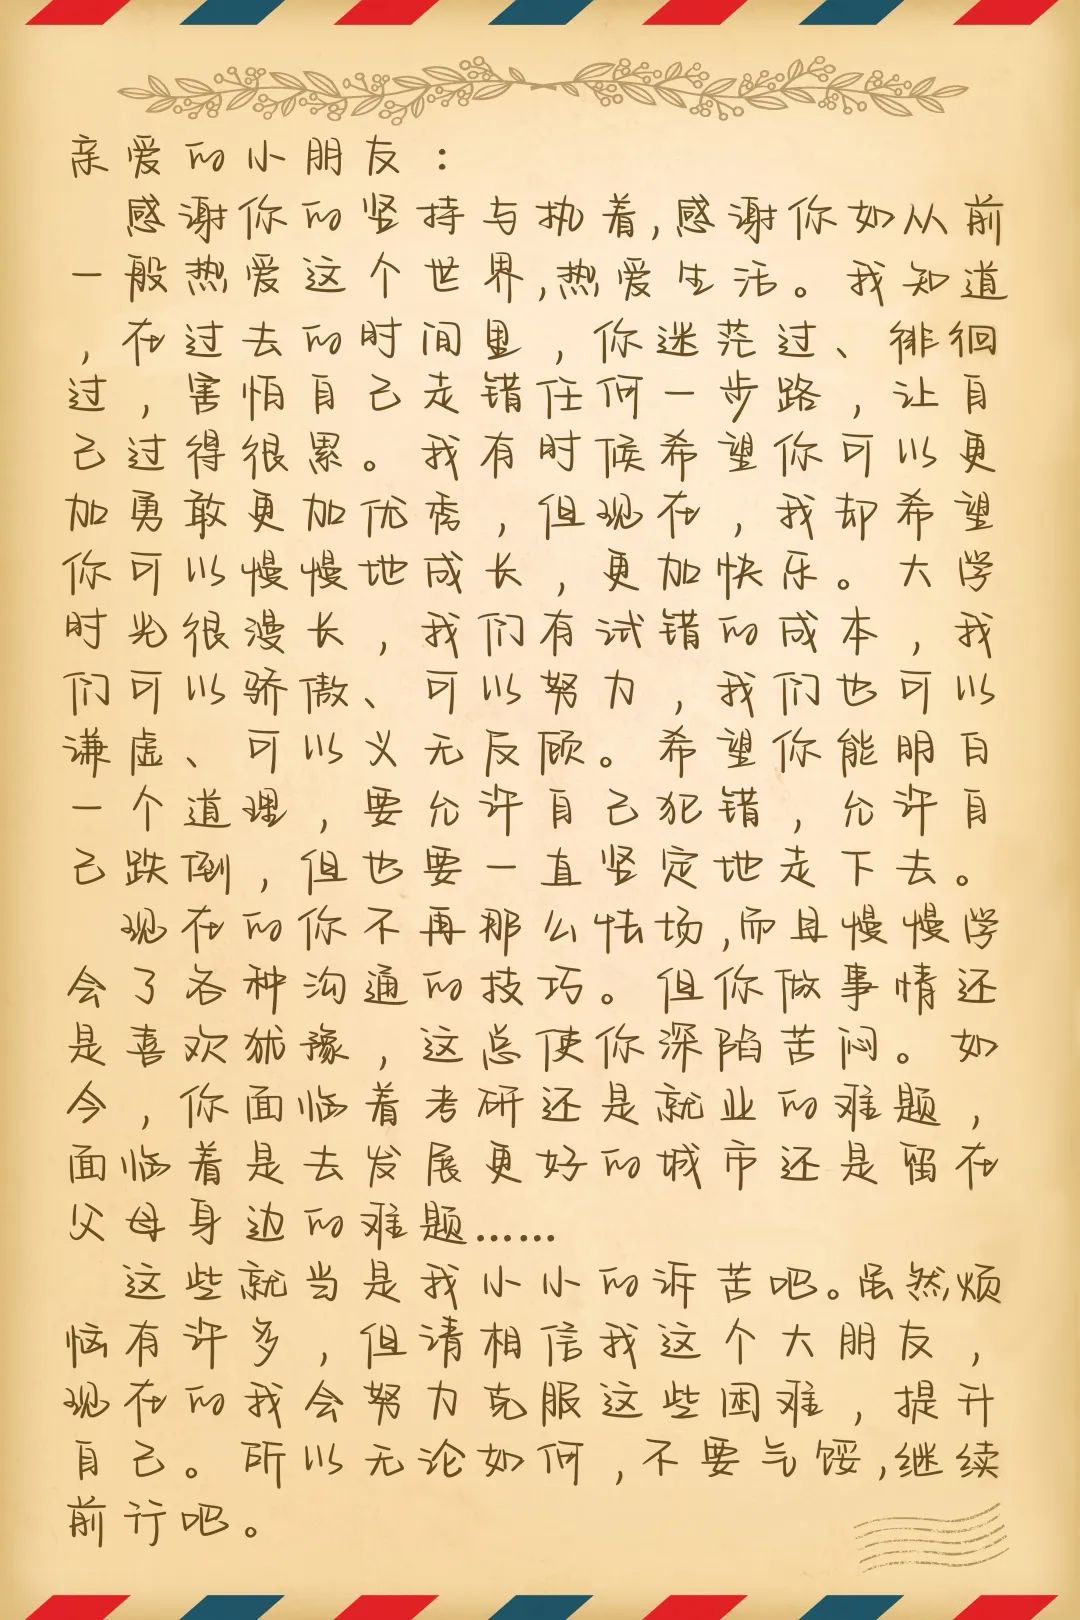 亲爱的小朋友：
感谢你的坚持与执着,感谢你如从前
一般热爱这个世界,热爱生活。我知道
，在过去的时间里，你迷茫过、徘徊
过，害怕自己走错任何一步路，让自
己过得很累。我有时候希望你可以更
加勇敢更加优秀，但现在，我却希望
你可以慢慢地成长，更加快乐。大学
时光很漫长，我们有试错的成本，我
们可以骄傲、可以努力，我们也可以
谦虚、可以义无反顾。希望你能明白
一个道理，要允许自己犯错，允许自
己跌倒，但也要一直坚定地走下去。
现在的你不再那么怯场,而且慢慢学
会了各种沟通的技巧。但你做事情还
是喜欢犹豫，这总使你深陷苦闷。如
今，你面临着考研还是就业的难题，
面临着是去发展更好的城市还是留在
父母身边的难题……
这些就当是我小小的诉苦吧。虽然烦
恼有许多，但请相信我这个大朋友，
现在的我会努力克服这些困难，提升
自己。所以无论如何,不要气馁,继续
前行吧。